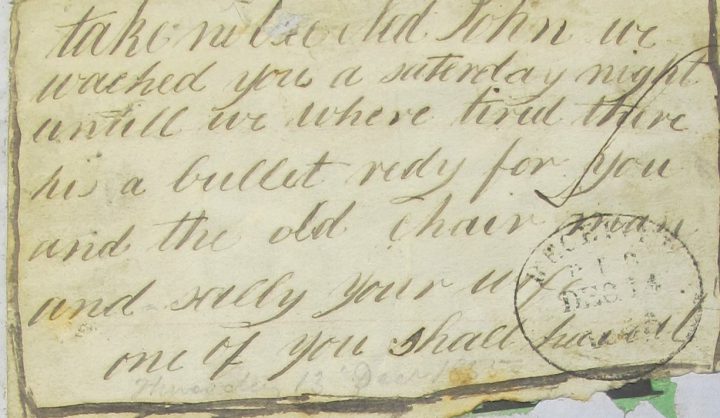 take notice Old John we
wached you a saterday night
untill we where tired there
his a bullet redy for you
and the old chair man
and sally your wife
one of you shall have it
RECEIVED
DEC 14
Thursday 13 Decr